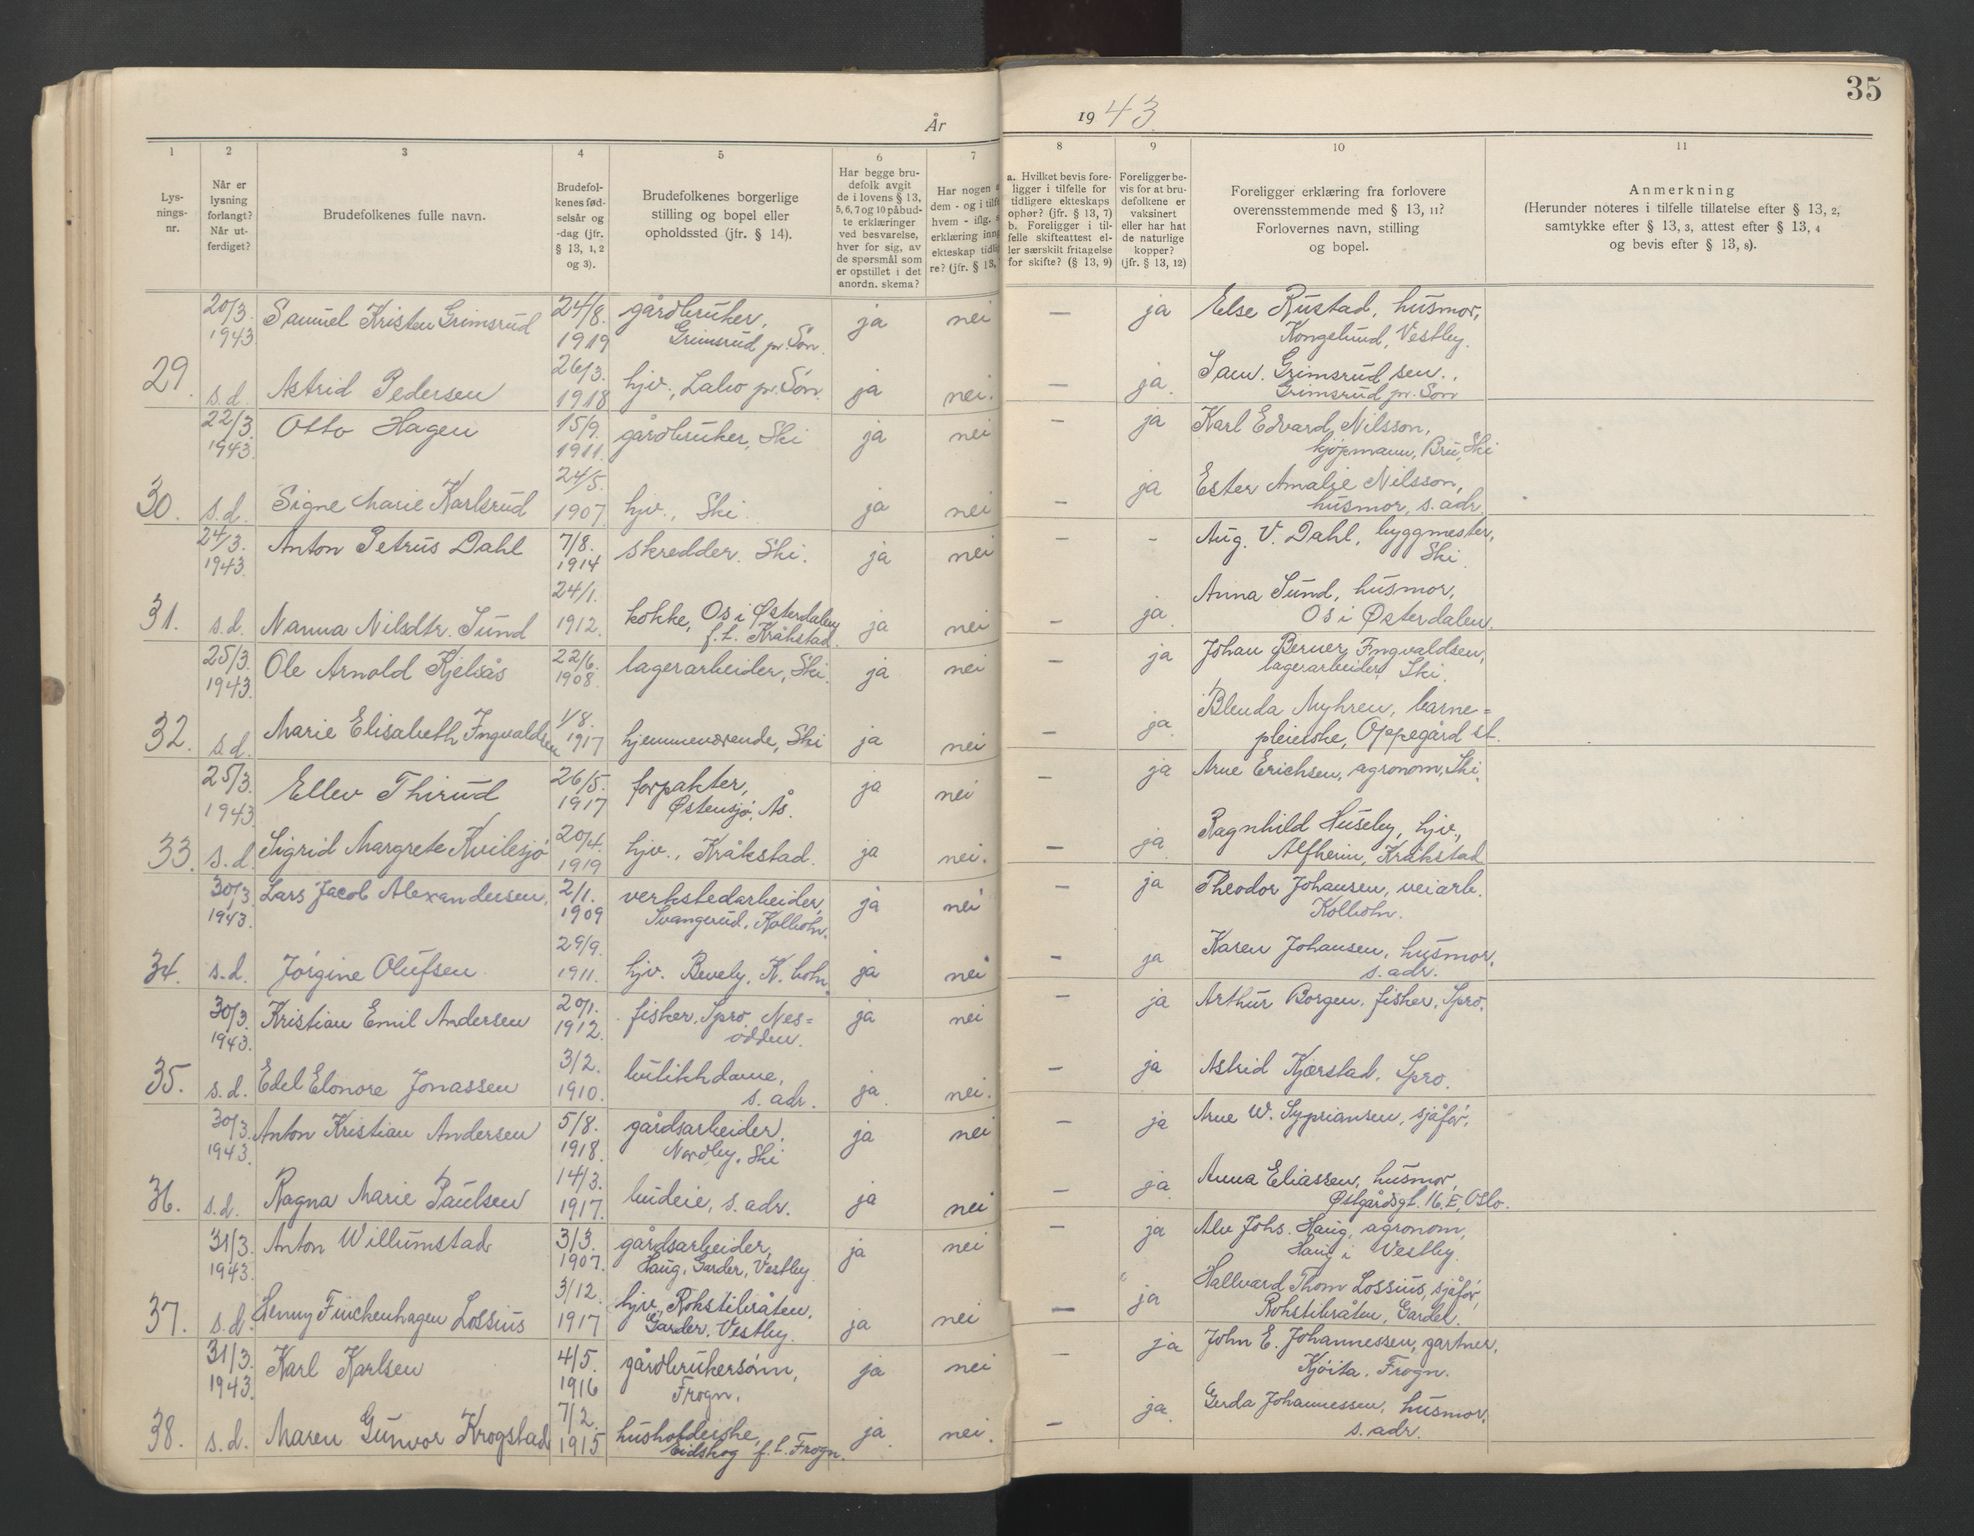 35
År
1943
1
2
3
4
5
6
7
8
9
10
11
Lys-
nings-
nr.
Når er
lysning
forlangt?
Når ut-
ferdiget?
Brudefolkenes fulle navn.
Brudefol-
kenes fød-
selsår og
-dag (jfr.
§ 13, 1, 2
og 3).
Brudefolkenes borgerlige
stilling og bopel eller
opholdssted (jfr. § 14).
Har begge bru-
defolk avgit
de i lovens § 13,
5, 6, 7 og 10 påbud-
te erklæringer
ved besvarelse,
hver for sig, av
de spørsmål som
er opstillet i det
anordn. skema?
Har nogen a
dem - og i tilf
hvem - iflg. s
erklæring inng
ekteskap tidli
re? (jfr. § 13,
a. Hvilket bevis fore-
ligger i tilfelle for
tidligere ekteskaps
ophør? (jfr. § 13, 7)
b. Foreligger i til-
felle skifteattest el-
ler særskilt fritagelse
for skifte? (§ 13, 9)
Foreligger be-
vis for at bru-
defolkene er
vaksinert
eller har hat
de naturlige
kopper?
(jfr. § 13, 12)
Foreligger erklæring fra forlovere
overensstemmende med § 13, 11?
Forlovernes navn, stilling
og bopel.
Anmerkning
(Herunder noteres i tilfelle tillatelse efter § 13, 2,
samtykke efter § 13, 3, attest efter § 13, 4
og bevis efter § 13, 8).
20/3. 1943 Samuel Kristen Grimsrud 24/8. 1919 gårdbruker, Grimsrud pr. Son. ja nei — ja Else Rustad, husmor,
Kongelund, Vestby.
29. s.d. Astrid Pedersen 26/3. 1918 hjv., Labo pr. Son. ja nei. — ja. Sam. Grimsrud sen.,
Grimsrud pr. Son
22/3. 1943. Otto Hagen 15/9. 1911. gårdbruker, Ski ja nei — ja Karl Edvard Nilsson,
kjøpmann, Bru, Ski
30. s.d. Signe Marie Karlsrud 24/5. 1907. hjv., Ski. ja nei — ja Ester Amalie Nilsson,
husmor, s. adr.
24/3. 1943. Anton Petrus Dahl 7/8. 1914 skredder. Ski. ja nei — - Aug. V. Dahl, byggmester,
Ski.
31. s.d. Nanna Nilsdtr. Sund 24/1. 1912. kokke, Os i Østerdalen, f.t. Kråkstad. ja nei — ja. Anna Sund, husmor,
Os i Østerdalen.
25/3. 1943. Ole Arnold Kjelsås 22/6. 1908. lagerarbeider, Ski. ja nei — ja Johan Berner Ingvaldsen,
lagerarbeider, Ski.
32. s.d. Marie Elisabeth Ingvaldsen 1/8. 1917 hjemmeværende, Ski ja nei — ja. Blenda Myhren, barne=
pleierske, Oppegård st.
25/3. 1943. Ellev Thirud 26/5. 1917 forpakter, Østensjø, Ås. ja nei — ja Arne Erichsen, agronom, Ski.
33. s.d. Sigrid Margrete Kvilesjø 20/4. 1919 hjv., Kråkstad. ja nei. — ja. Ragnhild Huseby, hjv.,
Alfheim, Kråkstad
30/3 1943. Lars Jacob Alexandersen, 2/1. 1909 verkstedarbeider, Svangerud. Kolbotn. ja nei — ja Theodor Johansen, veiarb.
Kolbotn.
34. s.d. Jørgine Olufsen 29/9. 1911. hjv. Bevely, K. botn. ja nei — ja Karen Johansen, husmor,
s. adr.
30/3. 1943. Kristian Emil Andersen 20/1. 1912. fisker, Spro, Nes=
odden. ja nei — ja Arthur Borgen, fisker, Spro.
35. s.d. Edel Elonore Jonassen 3/2. 1910. butikkdame, s. adr. ja. nei. — ja Astrid Kjærstad, Spro.
30/3 1943. Anton Kristian Andersen 5/8. 1918. gårdsarbeider, Nordby, Ski ja nei — ja Arne W. Sypriansen, sjåfør,
36. s.d. Ragna Marie Paulsen 14/3. 1917. budeie, s. adr. ja nei — ja. Anna Eliassen, husmor,
Østgårdsgt. 16. E, Oslo.
31/3 1943. Anton Willumstad 3/3. 1907. gårdsarbeider, Haug, Garder, Vestby. ja nei — ja Alv Johs. Haug, agronom,
Haug i Vestby.
37. s.d. Henny Finckenhagen Lossius 3/12. 1917 hjv. Rokstibråten, Garder, Vestby. ja nei — ja Hallvard Thom Lossius, sjåfør,
Rokstibråten, Garder.
31/3. 1943. Karl Karlsen 4/5. 1916 gårdbrukersønn, Frogn. ja nei — ja John E. Johannessen, gartner,
Kjøita, Frogn.
38. s.d. Maren Gunvor Krogstad 7/2. 1915 husholderske, Eidskog f.t. Frogn. ja nei. — ja. Gerda Johannessen, husmor,
s. adr.